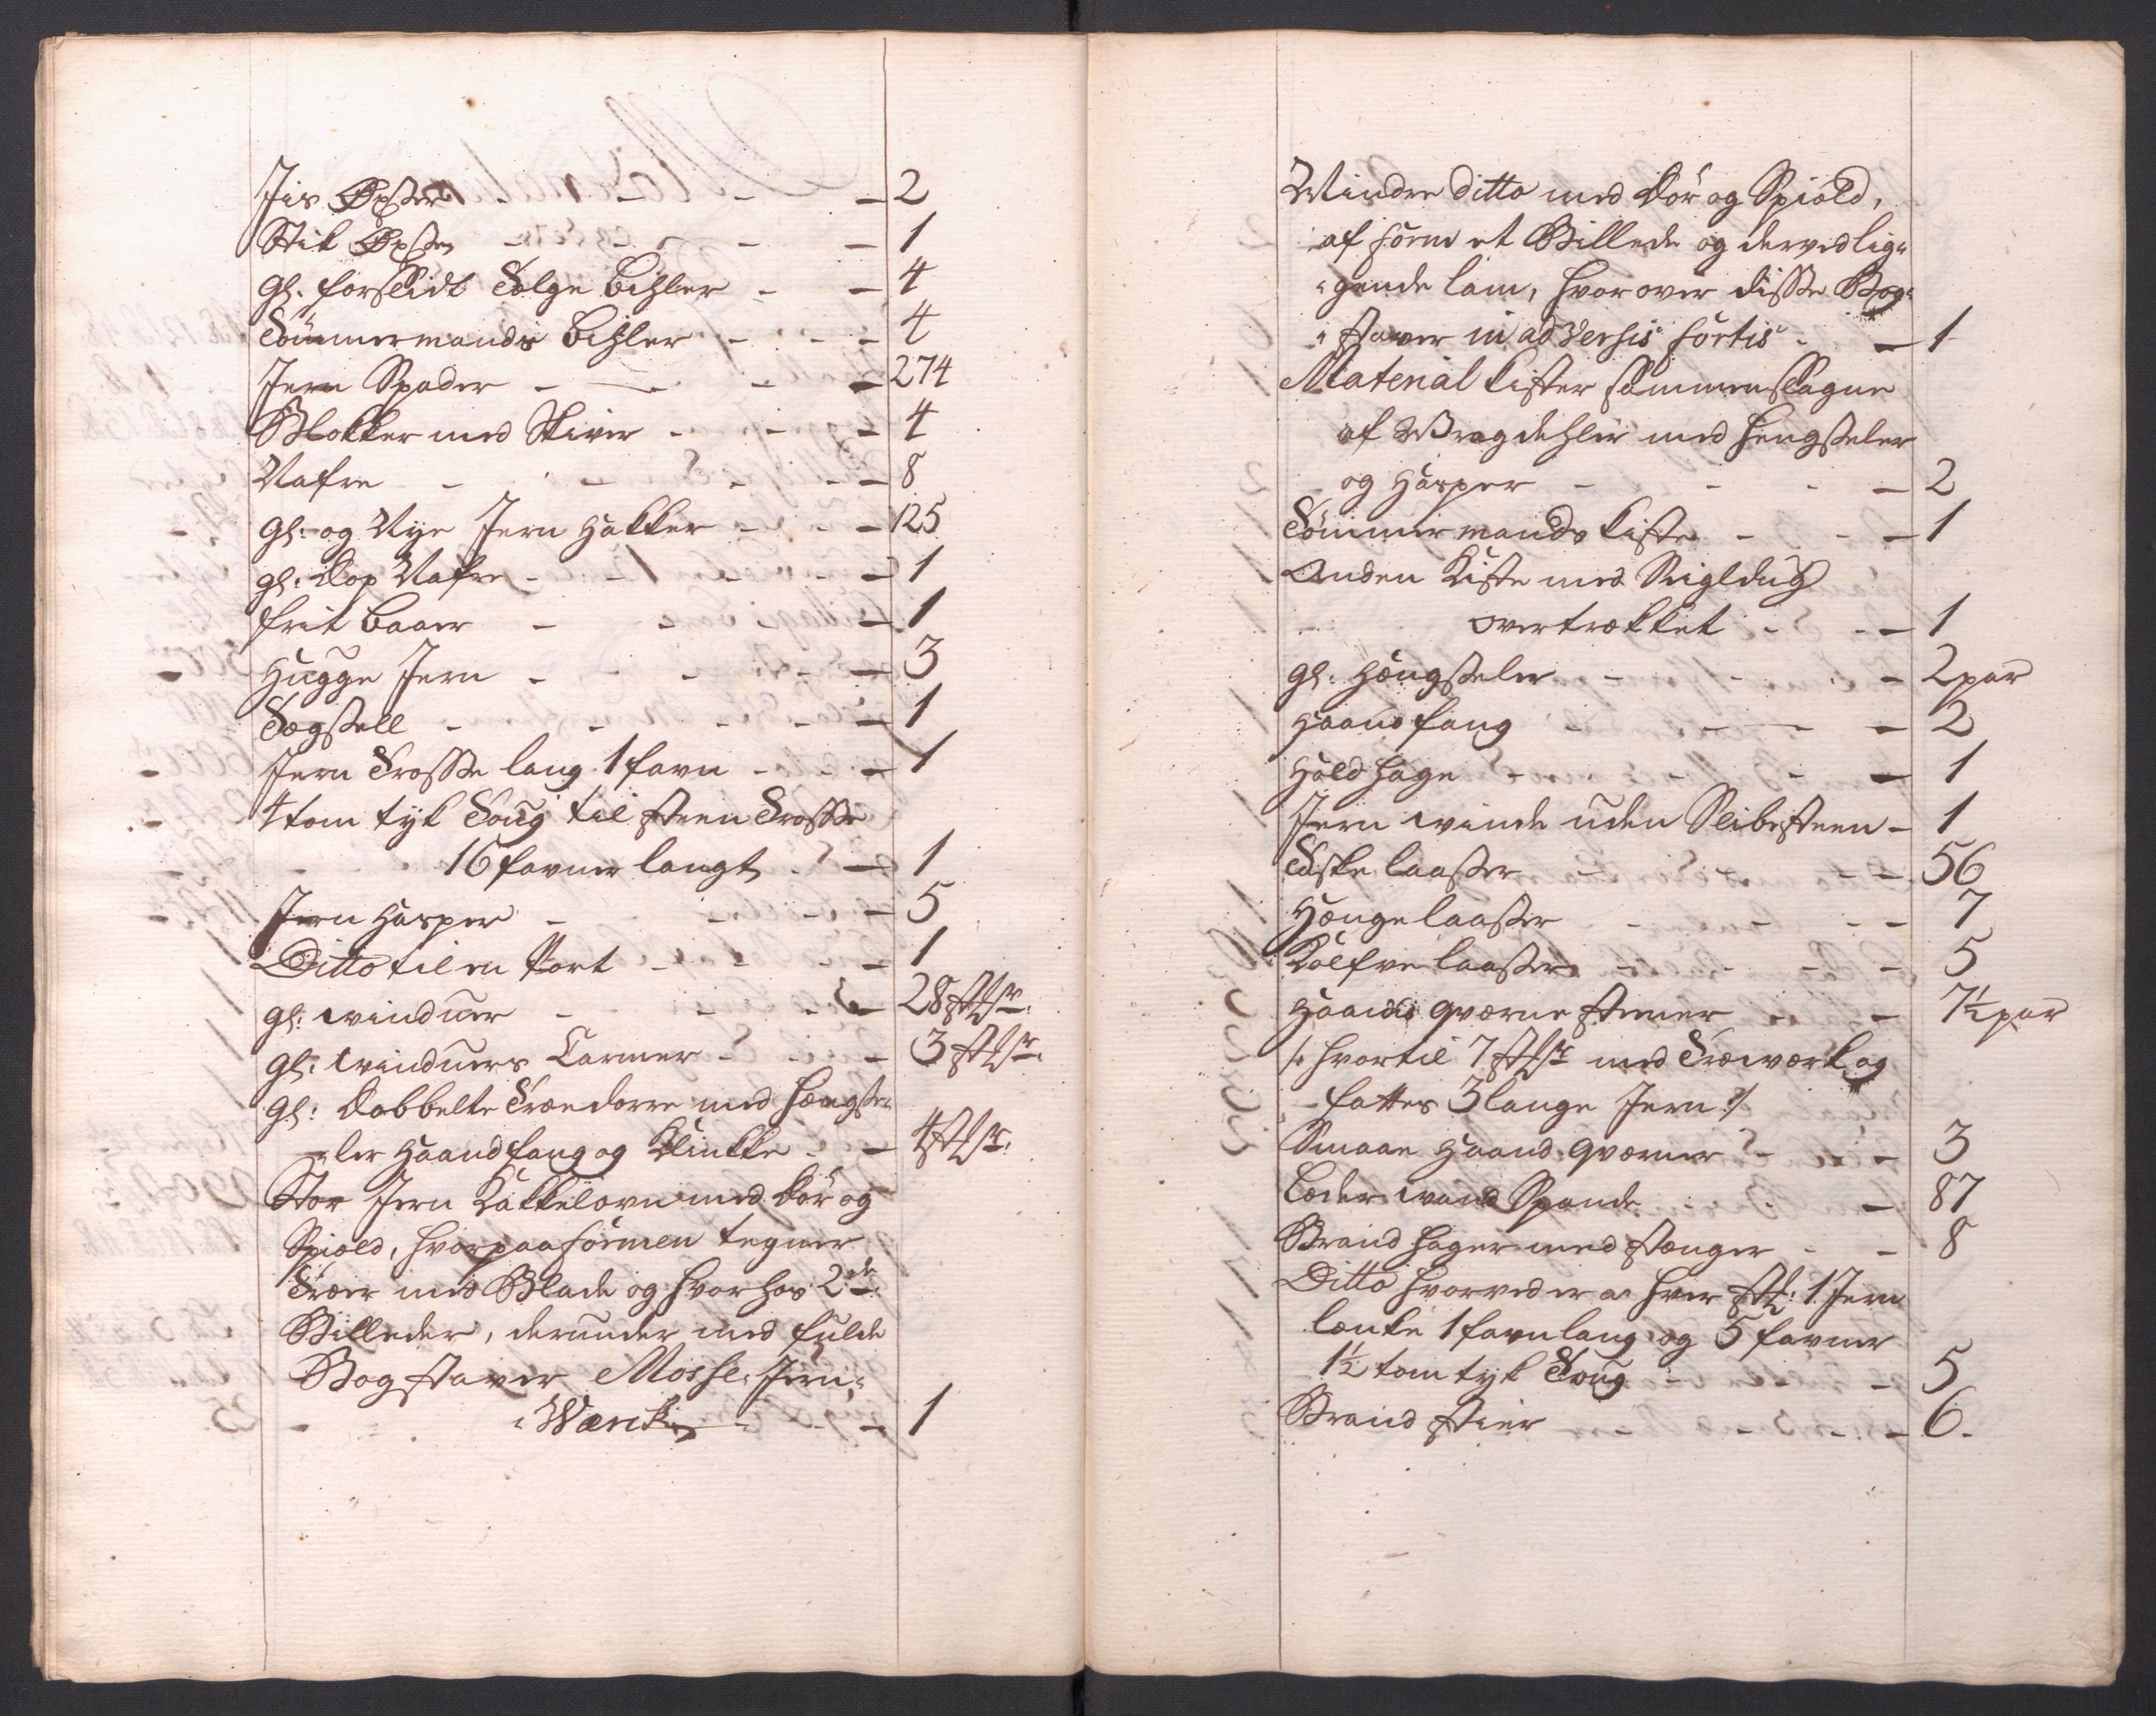 Jis Øxser - - - 2
Stik Øxse - - - 1
Gl. forslidt Tælge Bihler - - 4
Tømmermands Bihler - - - 4
Jern Spader - - - 274
Blokker med Skiver - - - 4
Nafre - - - 8
Gl: og Nye Jern Hakker - - - 125
gl: Dop Nafre - - - 1
frit Baaer - - - 1
Hugge Jern - - - 3
Sogstell - - - 1
Jern Trosse lang 1 favn - - - 1
4 tom tyk Toug til steen Trosse
16 favner langt - - 1
Jern Hasper - - - 5
Ditto til en Port - - - 1
gl: winduer - - - 28 stkr.
gl: winduers Carmer - - - 3 stkr.
gl: Dobbelte Træedørre med Hængse-
-ler Haandfang og Klinkke - - 4 stkr.
Stor Jern Kakkelovn med Dør og
Spiæld, hvorpaa formen tegner
Træer med Blade og hvorhos 2de
Billeder, derunder med fulde
Bogstaver Mosse-Jern-
-Wærck - - - 1
Mindre ditto med Dør og Spiæld,
af form et Billede og derved lig-
-gende lam, hvorover disse Bog-
-staver in adversis fortis - - 1
Material Kister sammenslagne
af Wragdehler med hengseler
og Hasper - - - 2
Tømmermands Kiste - - - 1
Anden Kiste med Seigldug
overtrækket - - - 1
gl. Hængseler - - - 2 par
Haandfang - - - 2
Hold Hage - - - 1
Jern winde uden Slibesteen - 1
Taske laasser - - - 56
Hænge laasser - - - 7
Kolfve laasser - - - 5
Haand qværne steener - - 7½ par
/: hvortil 7 stkr med Træeværk og
fattes 3 lange Jern :/
Smaae Haand qværner - - - 3
Læder wand Spande - - - 87
Brand Hager med stænger - - 8
Ditto hvorved er a hver stk: 1 Jern
lænke 1 favn lang og 5 favner
1½ tom tyk Toug - - - 5
Brand stier - - - 6.